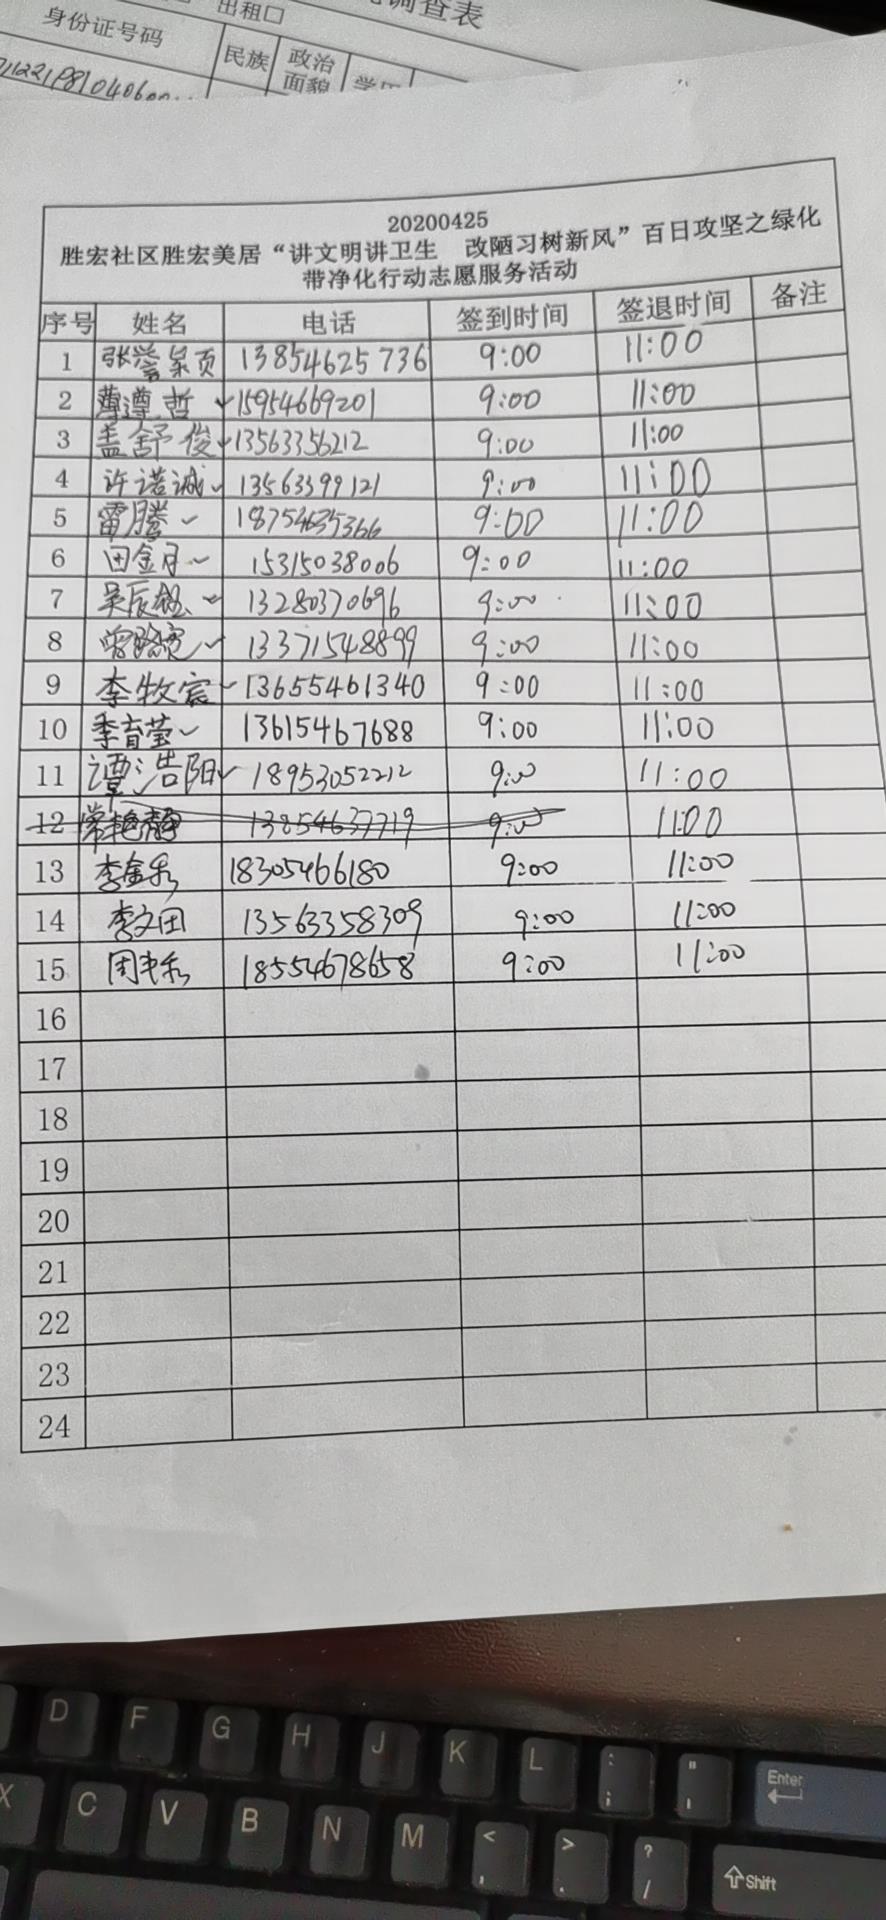 调查表
出租□
身份证号码 民族 政治面貌
20200425
胜宏社区胜宏美居“讲文明讲卫生 改陋习树新风”百日攻坚之绿化
带净化行动志愿服务活动
序号 姓名 电话 签到时间 签退时间 备注
1 张誉 13854625736 9:00 11:00
2 薄遵哲 15954669201 9:00 11:00
3 盖舒俊 13563356212 9:00 11:00
4 许诺诚 13563399121 9:00 11:00
5 雷腾 18754635366 9:00 11:00
6 田金月 15315038006 9:00 11:00
7 吴辰 13280370696 9:00 11:00
8 13371548899 9:00 11:00
9 李牧宸 13655461340 9:00 11:00
10 季育莹 13615467688 9:00 11:00
11 谭浩阳 18953052212 9:00 11:00
12 常艳静 13854637719 9:00 11:00
13 李金 18305466180 9:00 11:00
14 李文田 13563358309 9:00 11:00
15 周 18554678658 9:00 11:00
16
17
18
19
20
21
22
23
24
D F G H J K L : ; " ' Enter
X C V B N M < , > . ? / Shift